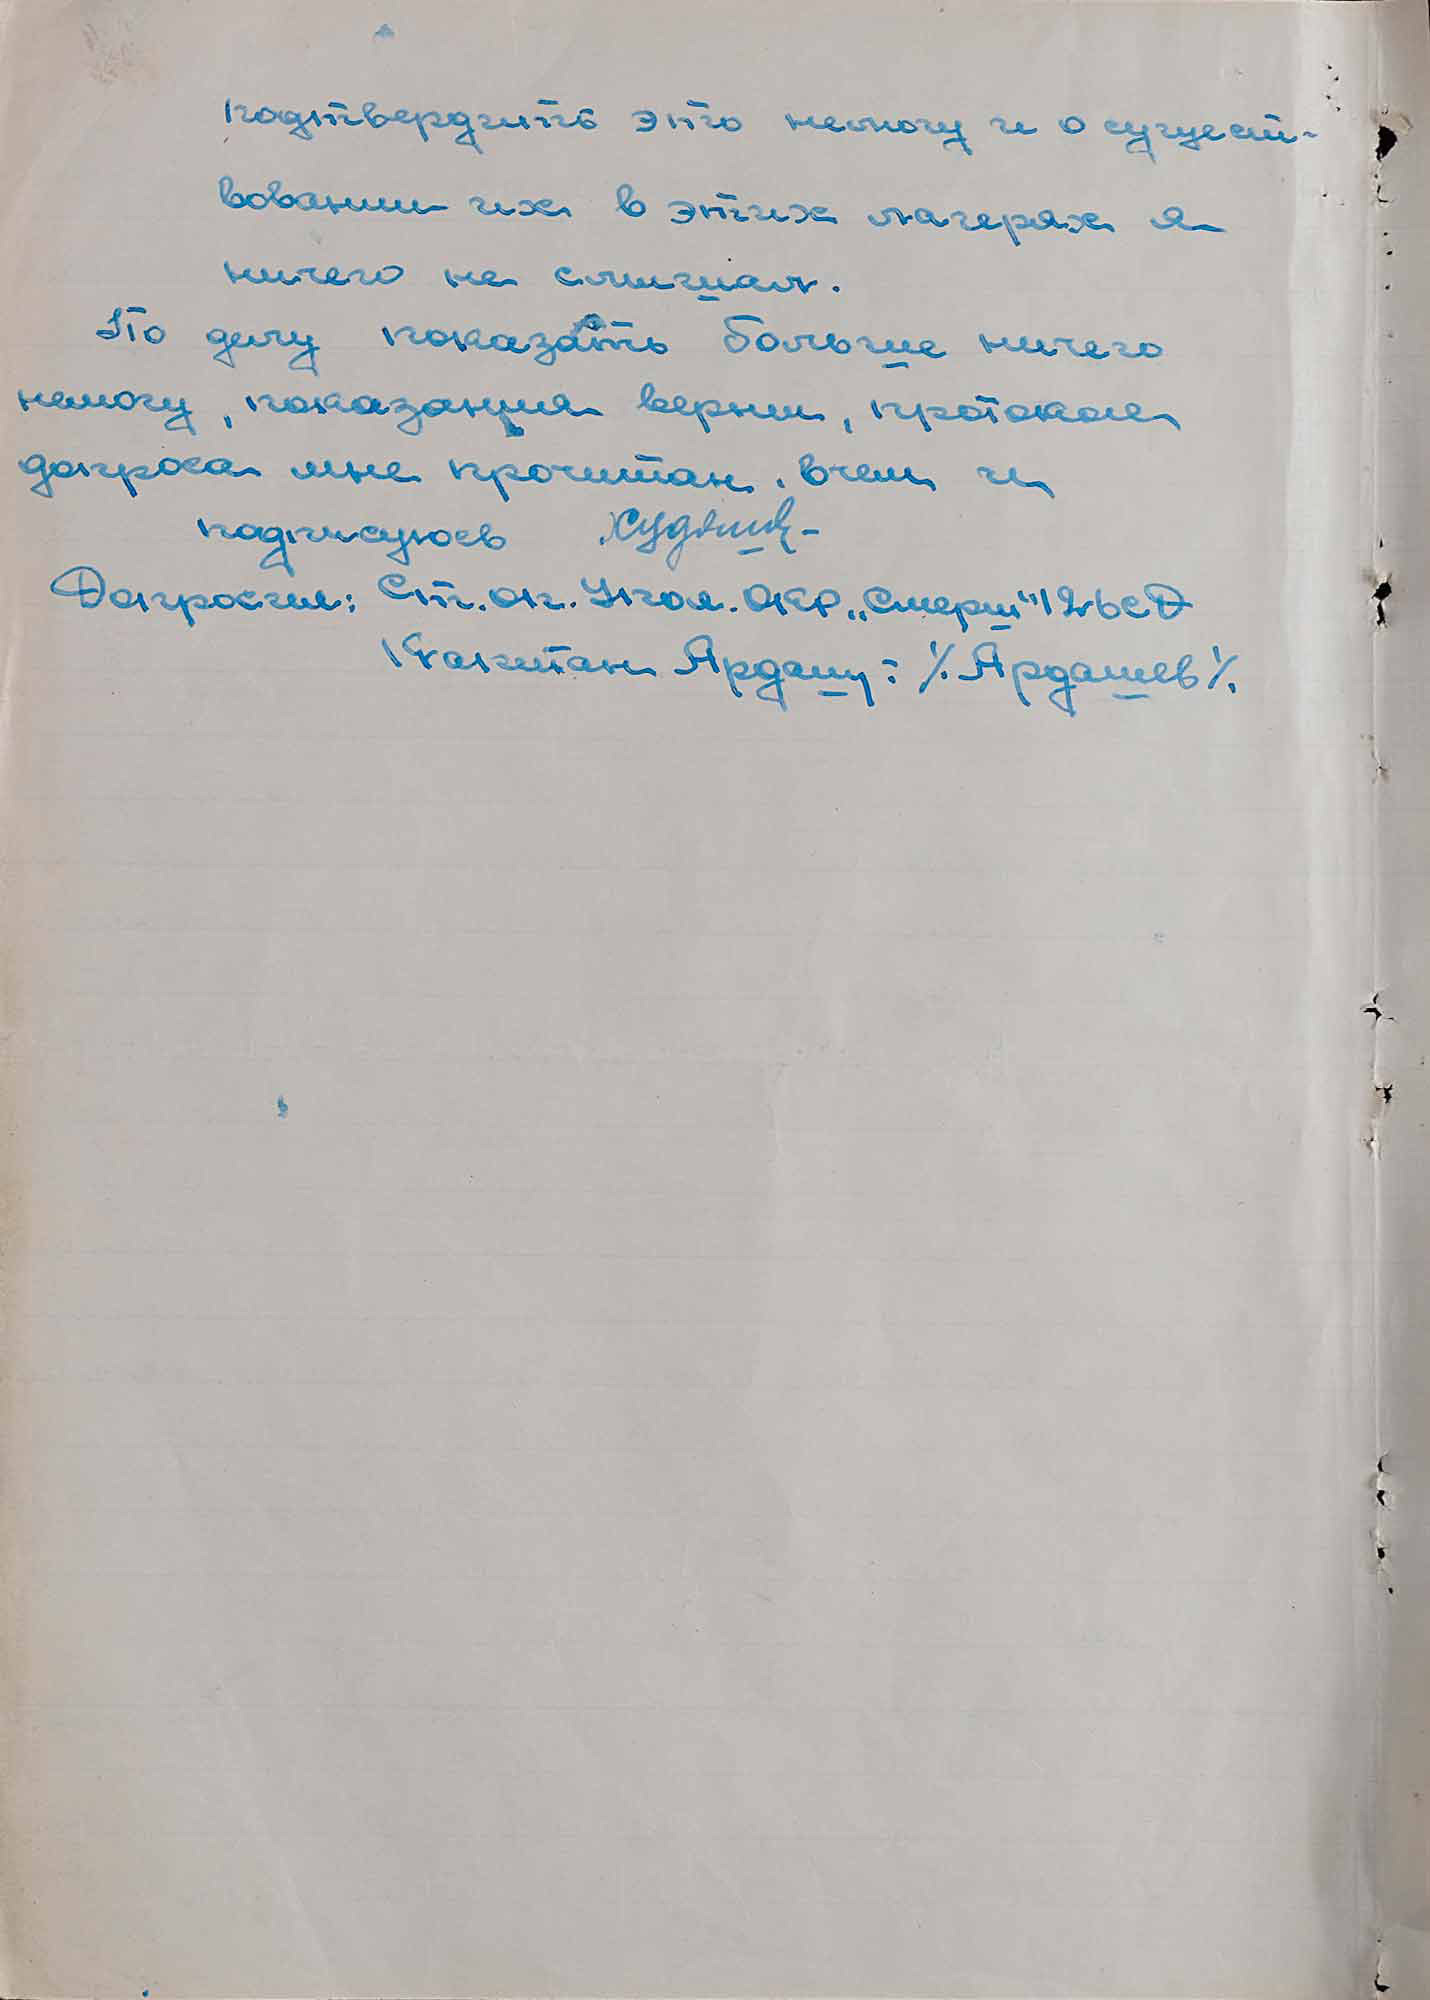 подтвердить это немогу и о сущест-
вовании их в этих лагерях я
ничего не слышал.
По делу показать больше ничего
немогу, показания верны, протокол
допроса мне прочитан, вчем и
подписуюсь
Допросил: Ст. оп. Упол. ОКР „Смерш"
Капитан Ардаш: /. Ардашев /.